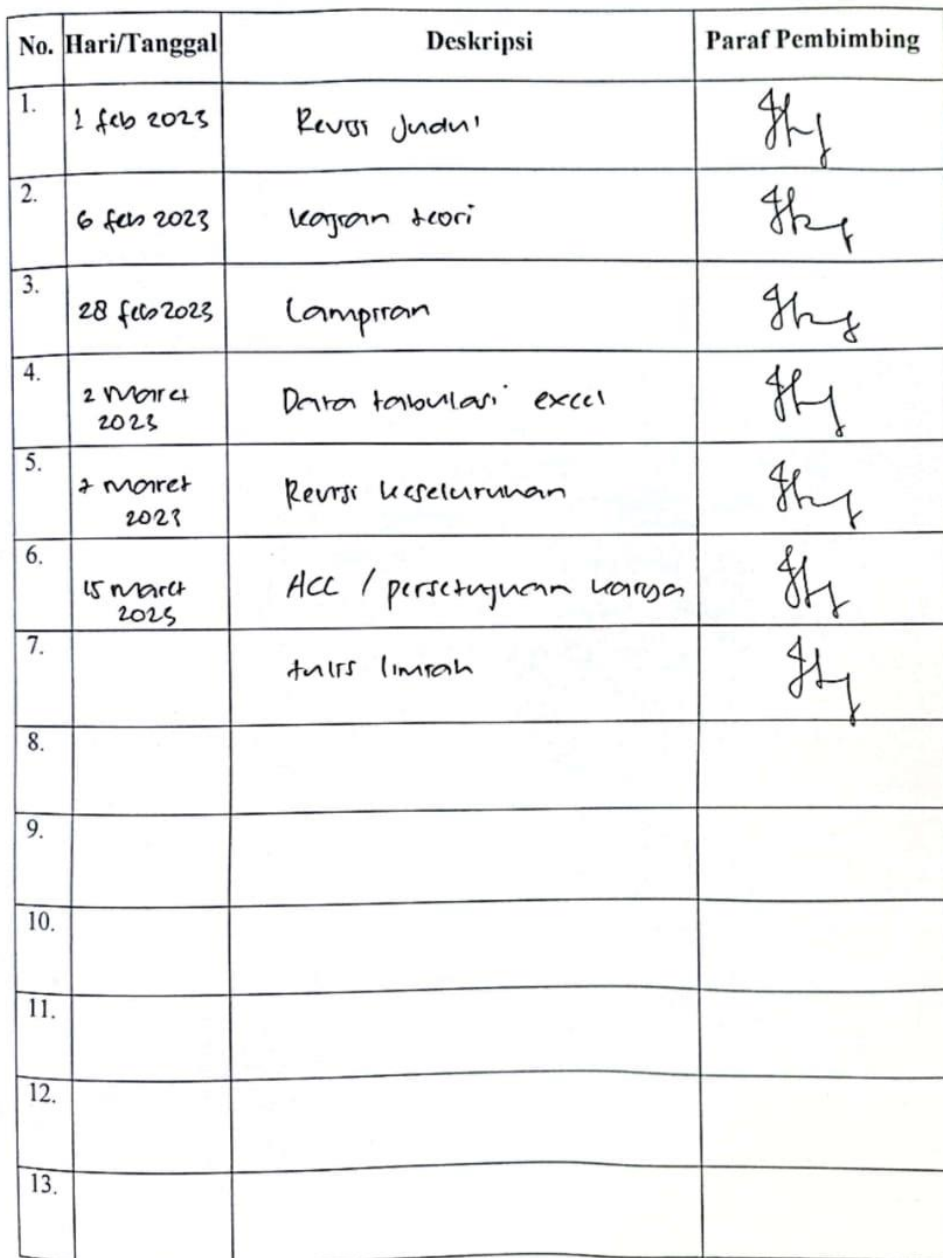 No. Hari/Tanggal Deskripsi Paraf Pembimbing
1. 1 feb 2023 Revisi Judul
2. 6 feb 2023 kajian teori
3. 28 feb 2023 Lampiran
4. 2 Maret 2023 Data tabulasi excel
5. 7 maret 2023 Revisi keseluruhan
6. 15 maret 2023 ACC / persetujuan karya
7. tulis Ilmiah
8.
9.
10.
11.
12.
13.